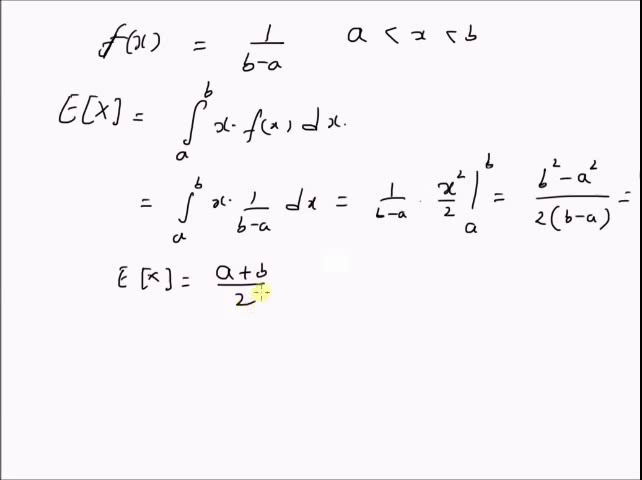 f(x) = 1/(b-a) a < x < b
E[X] = ∫_a^b x · f(x) dx.
= ∫_a^b x · 1/(b-a) dx = 1/(b-a) · x²/2 |_a^b = (b² - a²)/(2(b-a)) =
E[x] = (a+b)/2